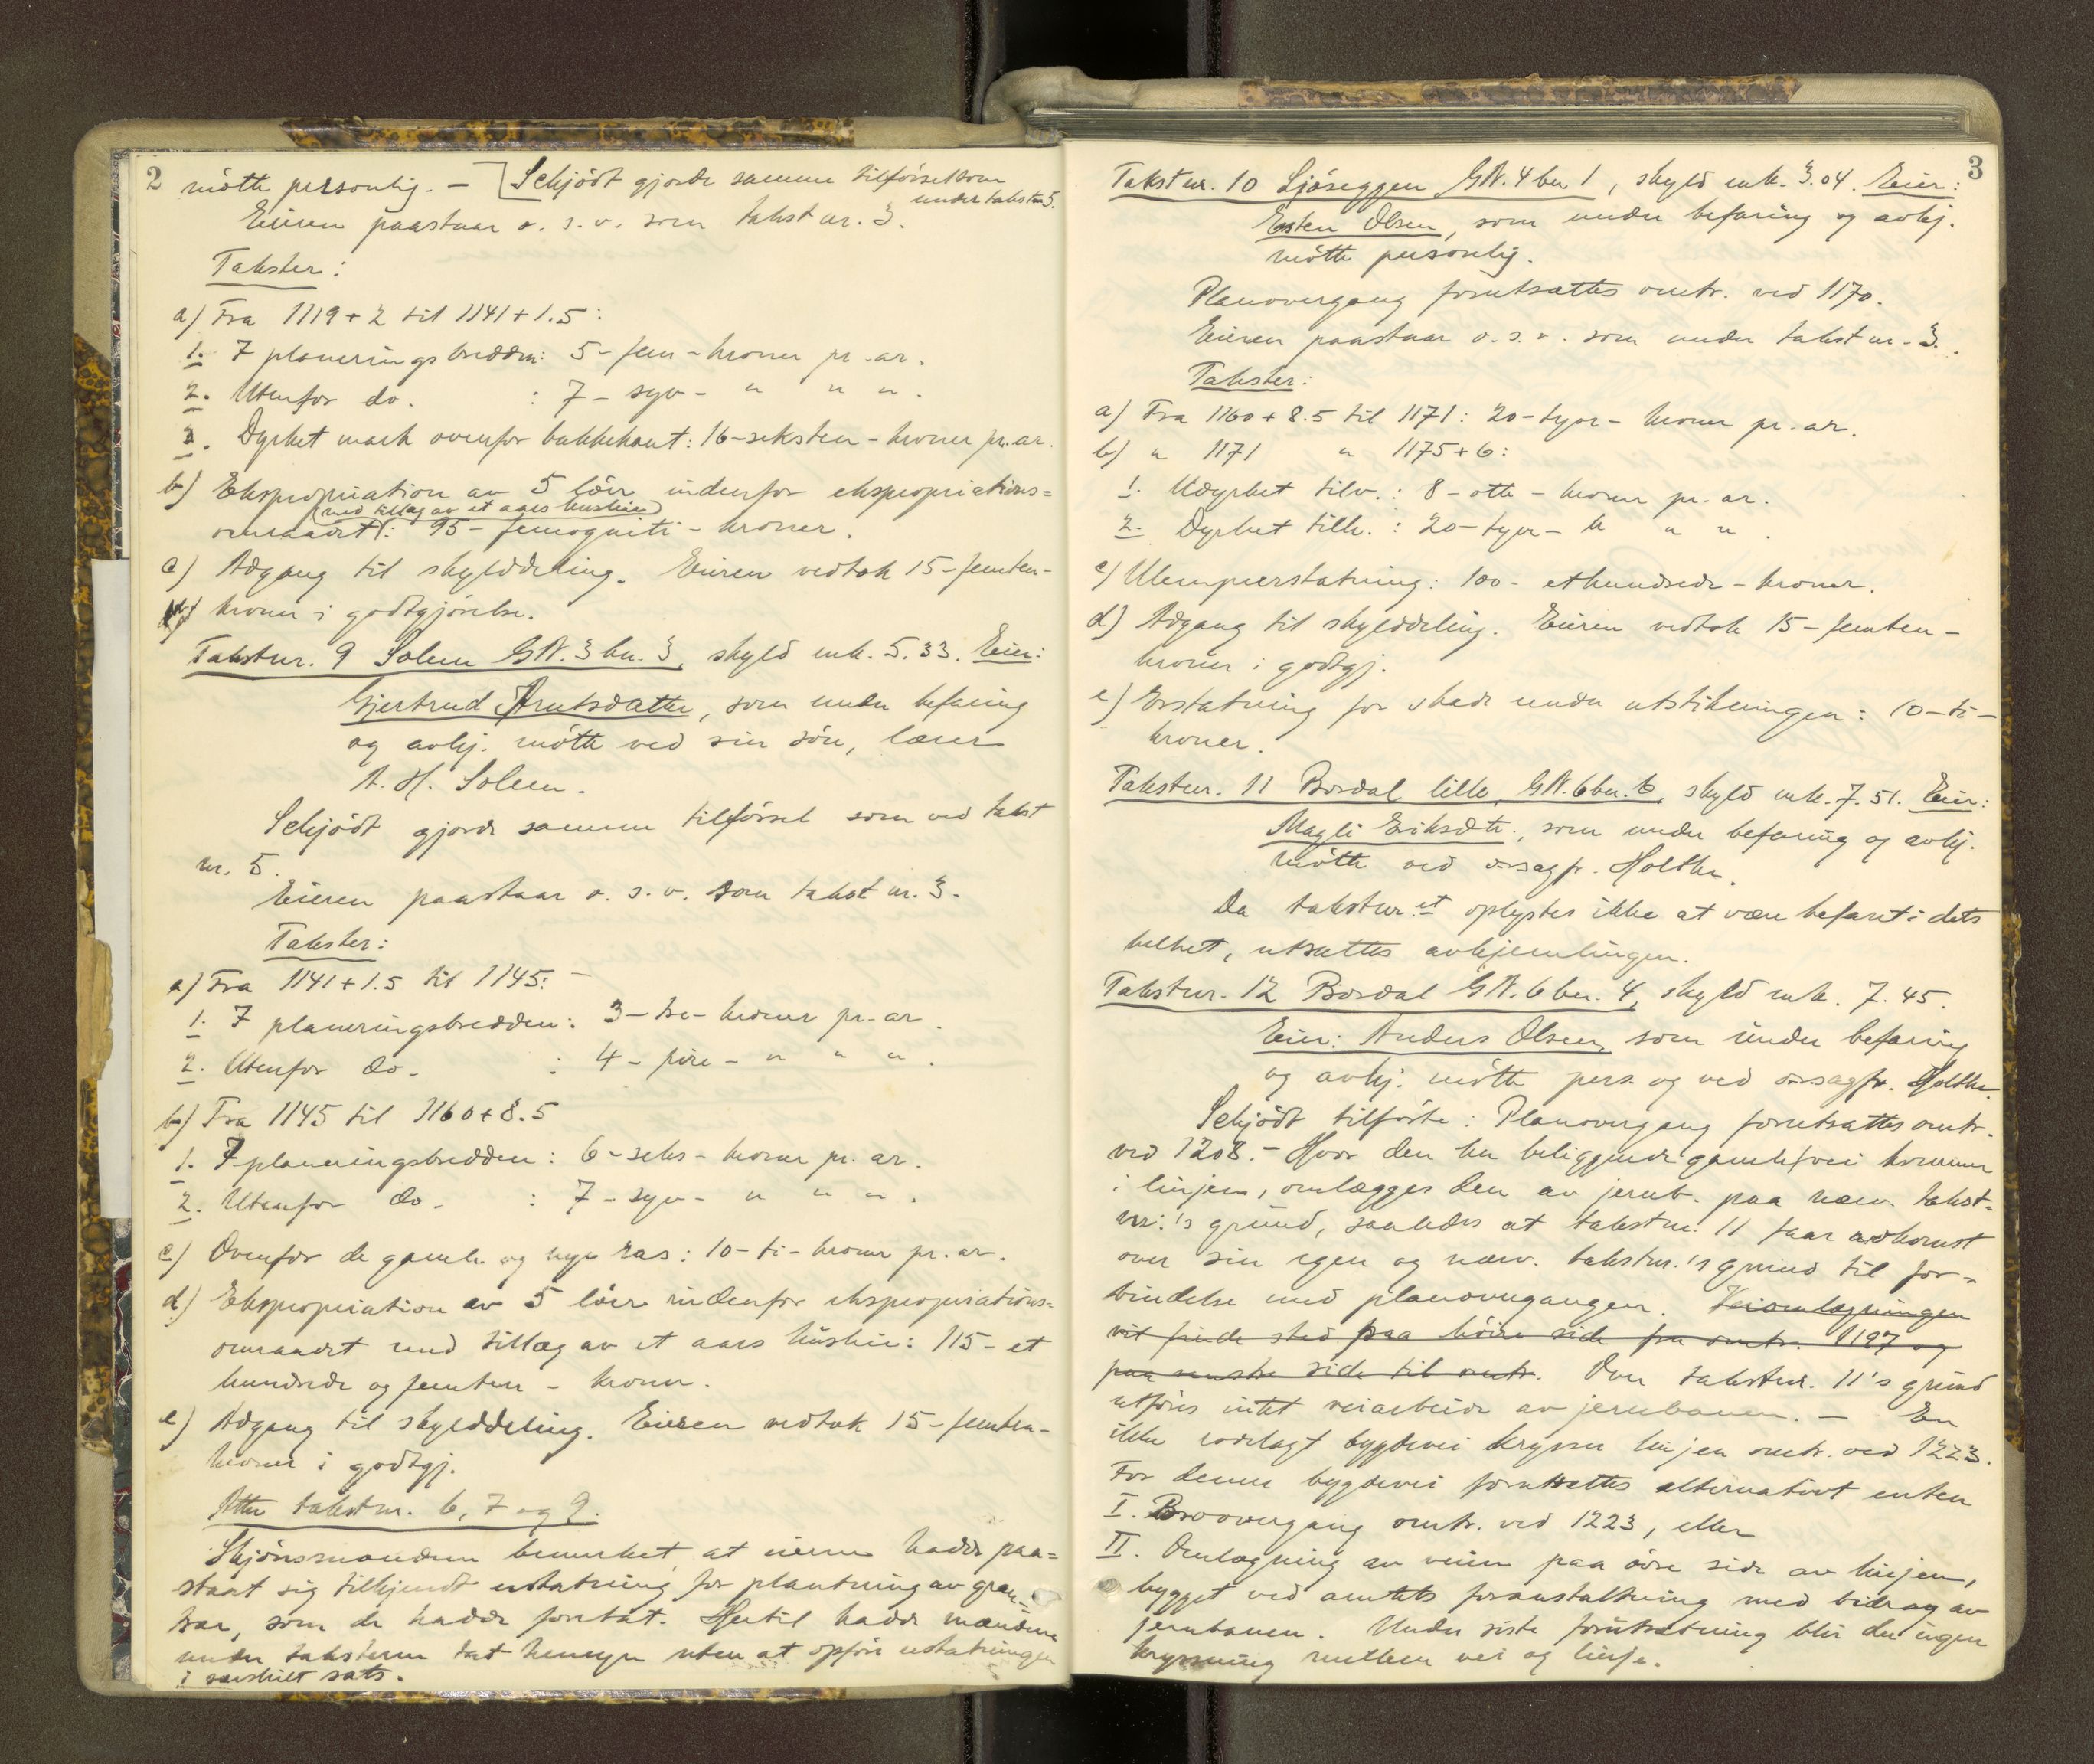 2
mötte personlig. — [Schjödt gjorde samme tilförsel som
under takstnr. 5.
Eieren paastaar o. s. v. som takst nr. 3.
Takster:
a) Fra 1119 + 2 til 1141 + 1.5:
1. I planeringsbredden: 5 - fem - kroner pr. ar.
2. Utenfor do. : 7 - syv - " " " .
3. Dyrket mark ovenfor bakkekant: 16 - seksten - kroner pr. ar.
b) Ekspropriation av 5 löer indenfor ekspropriations=
(med tillæg av et aars husleie)
omraadet: 95 - femognitti - kroner.
c) Adgang til skylddeling. Eieren vedtok 15 - femten -
kroner i godtgjörelse.
Takstnr. 9 Solem GN. 3 bn. 3, skyld mk. 5.33. Eier:
Gjertrud Arntsdatter, som under befaring
og avhj. mötte ved sin sön, lærer
A. H. Solem.
Schjödt gjorde samme tilförsel som ved takst
nr. 5.
Eieren paastaar o. s. v. som takst nr. 3.
Takster:
a) Fra 1141 + 1.5 til 1145: —
1. I planeringsbredden: 3 - tre - kroner pr. ar.
2. Utenfor do. : 4 - fire - " " " .
b) Fra 1145 til 1160 + 8.5
1. I planeringsbredden: 6 - seks - kroner pr. ar.
2. Utenfor do. : 7 - syv - " " " .
c) Ovenfor de gamle og nye ras: 10 - ti - kroner pr. ar.
d) Ekspropriation av 5 löer indenfor ekspropriations=
omraadet med tillæg av et aars husleie: 115 - et
hundrede og femten - kroner.
e) Adgang til skylddeling. Eieren vedtok 15 - femten -
kroner i godtgj.
Atter takstnr. 6, 7 og 9.
Skjönsmændene bemerket, at eierne hadde paa=
staat sig tilkjendt erstatning for plantning av gran=
trær, som de hadde foretat. Hertil hadde mændene
under taksterne tat hensyn uten at opföre erstatningen
i særskilt sats.
3
Takst nr. 10 Ljöseggen GN. 4 bn 1, skyld mk. 3.04. Eier:
Esten Olsen, som under befaring og avhj.
mötte personlig.
Planovergang forutsættes omtr. ved 1170.
Eieren paastaar o. s. v. som under takst nr. 3.
Takster:
a) Fra 1160 + 8.5 til 1171: 20 - tyve - kroner pr. ar.
b) " 1171 " 1175 + 6:
1. Udyrket tilv.: 8 - otte - kroner pr. ar.
2. Dyrket tilh.: 20 - tyve - k " " .
c) Ulempeerstatning: 100 - ethundrede - kroner.
d) Adgang til skylddeling. Eieren vedtok 15 - femten -
kroner i godtgj.
e) Erstatning for skade under utstikningen: 10 - ti -
kroner.
Takstnr. 11 Bordal lille, GN. 6 bn. 6, skyld mk. 7.51. Eier:
Magli Eriksdtr., som under befaring og avhj.
mötte ved o.r.sagf. Holthe.
Da takstnr.et oplystes ikke at være befaret i dets
helhet, utsættes avhjemlingen.
Takstnr. 12 Bordal GN. 6 bn. 4, skyld mk. 7.45.
Eier: Anders Olsen, som under befaring
og avhj. mötte pers. og ved o.r.sagf. Holthe.
Schjödt tilförte: Planovergang forutsættes omtr.
ved 1208. - Hvor den her beliggende gamlevei kommer
i linjen, omlægges den av jernb. paa nærv. takst=
nr.'s grund, saaledes at takstnr. 11 faar adkomst
over sin egen og nærv. takstnr.'s grund til for=
bindelse med planovergangen. Veiomlægningen
vil finde sted paa höire side fra omtr. 1197 og
paa venstre side til omtr. Over takstnr. 11's grund
utföres intet veiarbeide av jernbanen. — En
ikke rodelagt bygdevei krysser linjen omtr. ved 1223.
For denne bygdevei forutsættes alternativt enten
I. Broovergang omtr. ved 1223, eller
II. Omlægning av veien paa övre side av linjen,
bygget ved amtets foranstaltning med bidrag av
jernbanen. Under siste forutsætning blir der ingen
kryssning mellem vei og linje.